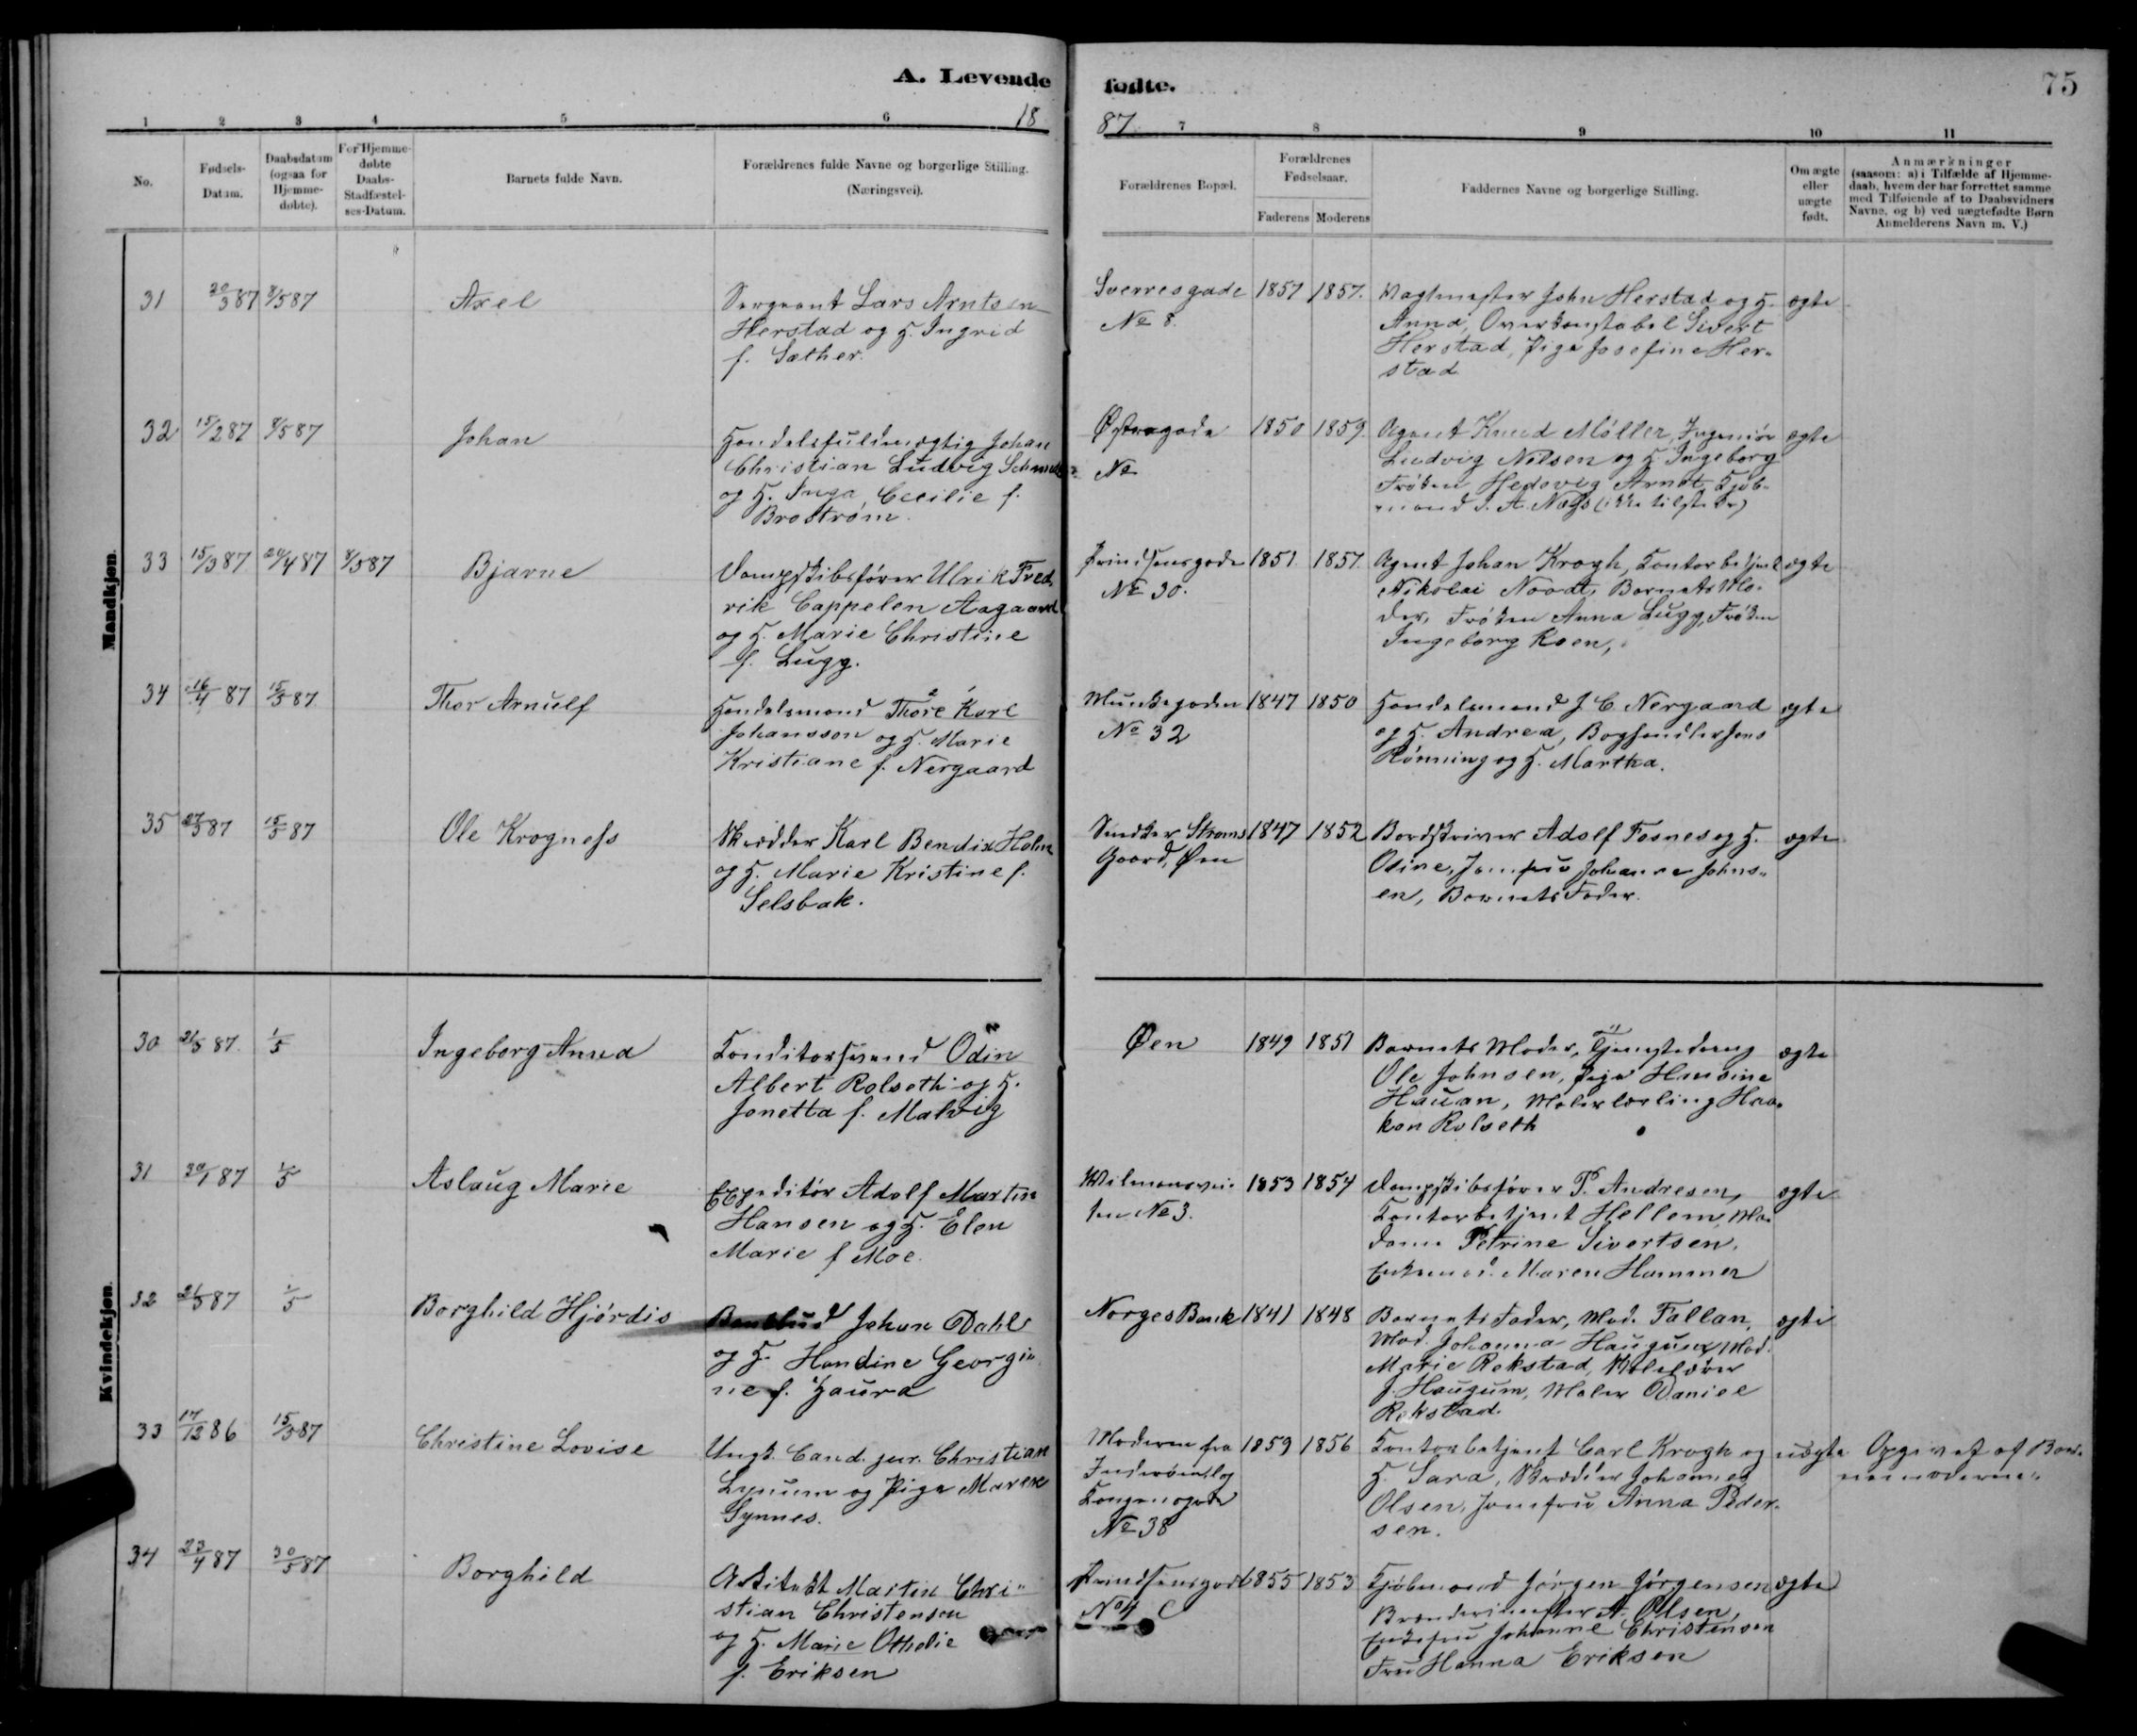 A. Levende fødte.
75
1887
1 2 3 4 5 6 7 8 9 10 11
No.
Fødsels-
Datum.
Daabsdatum
(ogsaa for
Hjemme-
døbte).
For Hjemme-
døbte
Daabs-
Stadfæstel-
ses-Datum.
Barnets fulde Navn.
Forældrenes fulde Navne og borgerlige Stilling.
(Næringsvei).
Forældrenes Bopæl.
Forældrenes
Fødselsaar.
Faderens Moderens
Faddernes Navne og borgerlige Stilling.
Om ægte
eller
uægte
født.
Anmærkninger
(saasom: a) i Tilfælde af Hjemme-
daab, hvem der har forrettet samme
med Tilføiende af to Daabsvidners
Navne, og b) ved uægtefødte Børn
Anmelderens Navn m. V.)
Mandkjøn.
31 20/3 87 8/5 87
Axel
Sergeant Lars Arntsen
Herstad og H. Ingrid
f. Sæther.
Sverresgade
No 8.
1857 1857.
Vagtmester John Herstad og H.
Anna, Overkonstabel Sivert
Herstad, Pige Josefine Her-
stad
ægte
32 15/2 87 8/5 87
Johan
Handelsfuldmægtig Johan
Christian Ludvig
og H. Inga Cecilie f.
Brostrøm.
Østregade
No
1850 1859
Agent Knud Møller, Ingeniør
Ludvig Nelsen og H. Ingeborg
Frøken Hedevig Arndt, Kjøb-
mand J. A. Næss (ikke tilstede)
ægte
33 15/3 87 20/4 87 8/5 87
Bjarne
Dampskibsfører Ulrik Fred
rik Cappelen Aagaard
og H. Marie Christine
f. Lugg.
Prindsensgade
No 30.
1851 1857
Agent Johan Krogh, Kontorbetjent
Nikolai Noodt, Barnets Mo-
der, Frøken Anna Lugg, Frøken
Ingeborg Koen,
ægte
34 16/4 87 15/5 87
Thor Arnulf
Handelsmand Thore Karl
Johansson og H. Marie
Kristiane f. Nergaard
Munkegaden
No 32
1847 1850
Handelsmand J. C. Nergaard
og H. Andrea, Boghandler Jens
Rønning og H. Martha.
ægte
35 27/3 87 15/5 87
Ole Krogness
Skrædder Karl Bendix Holm
og H. Marie Kristine f.
Selsbak.
Snedker Strøms
Gaard, Øen
1847 1852
Bordskriver Adolf Fosnes og H.
Odine, Jomfru Johanna Johns-
en, Barnets Fader.
ægte
Kvindekjøn.
30 21/3 87. 1/5
Ingeborg Anna
Konditorsvend Odin
Albert Rolseth og H.
Jonetta f. Malvig
Øen
1849 1851
Barnets Moder, Tjenestedreng
Ole Johnsen, Pige Hansine
Hauan, Malerlærling Haa-
kon Rolseth
ægte
31 30/1 87 1/5
Aslaug Marie
Expeditør Adolf Martin
Hansen og H. Elen
Marie f Moe.
Wilmansvei-
ten No 3.
1853 1854
Dampskibsfører P. Andresen,
Kontorbetjent Hellem, Ma-
dame Petrine Sivertsen,
Enkemad. Maren Hammer
ægte
32 21/3 87 1/5
Borghild Hjørdis
Bankbud Johan Dahl
og H. Handine Georgi-
ne f. Haura
Norges Bank
1841 1848
Barnets Fader, Mad. Fallan,
Mad. Johanna Haugum, Mad.
Marie Rekstad,
J. Haugum, Maler Daniel
Rekstad.
ægte
33 17/12 86 15/5 87
Christine Lovise
Ungk. Cand. jur. Christian
Lynum og Pige Maren
Synnes.
Moderen fra
Inderøen, log
Kongensgade
No 38
1859 1856
Kontorbetjent Carl Krogh og
H. Sara, Skrædder Johannes
Olsen, Jomfru Anna Peder-
sen.
uægte
Opgivet af Bar-
nemoderen.
34 23/4 87 30/5 87
Borghild
Arkitekt Martin Chri-
stian Christensen
og H. Marie Othelie
f. Eriksen
Prindsensgade
No 4 C
1855 1853
Kjøbmand Jørgen Jørgensen
Brænderimester A. Olsen,
Enkefru Johanne Christensen
Fru Hanna Eriksen
ægte